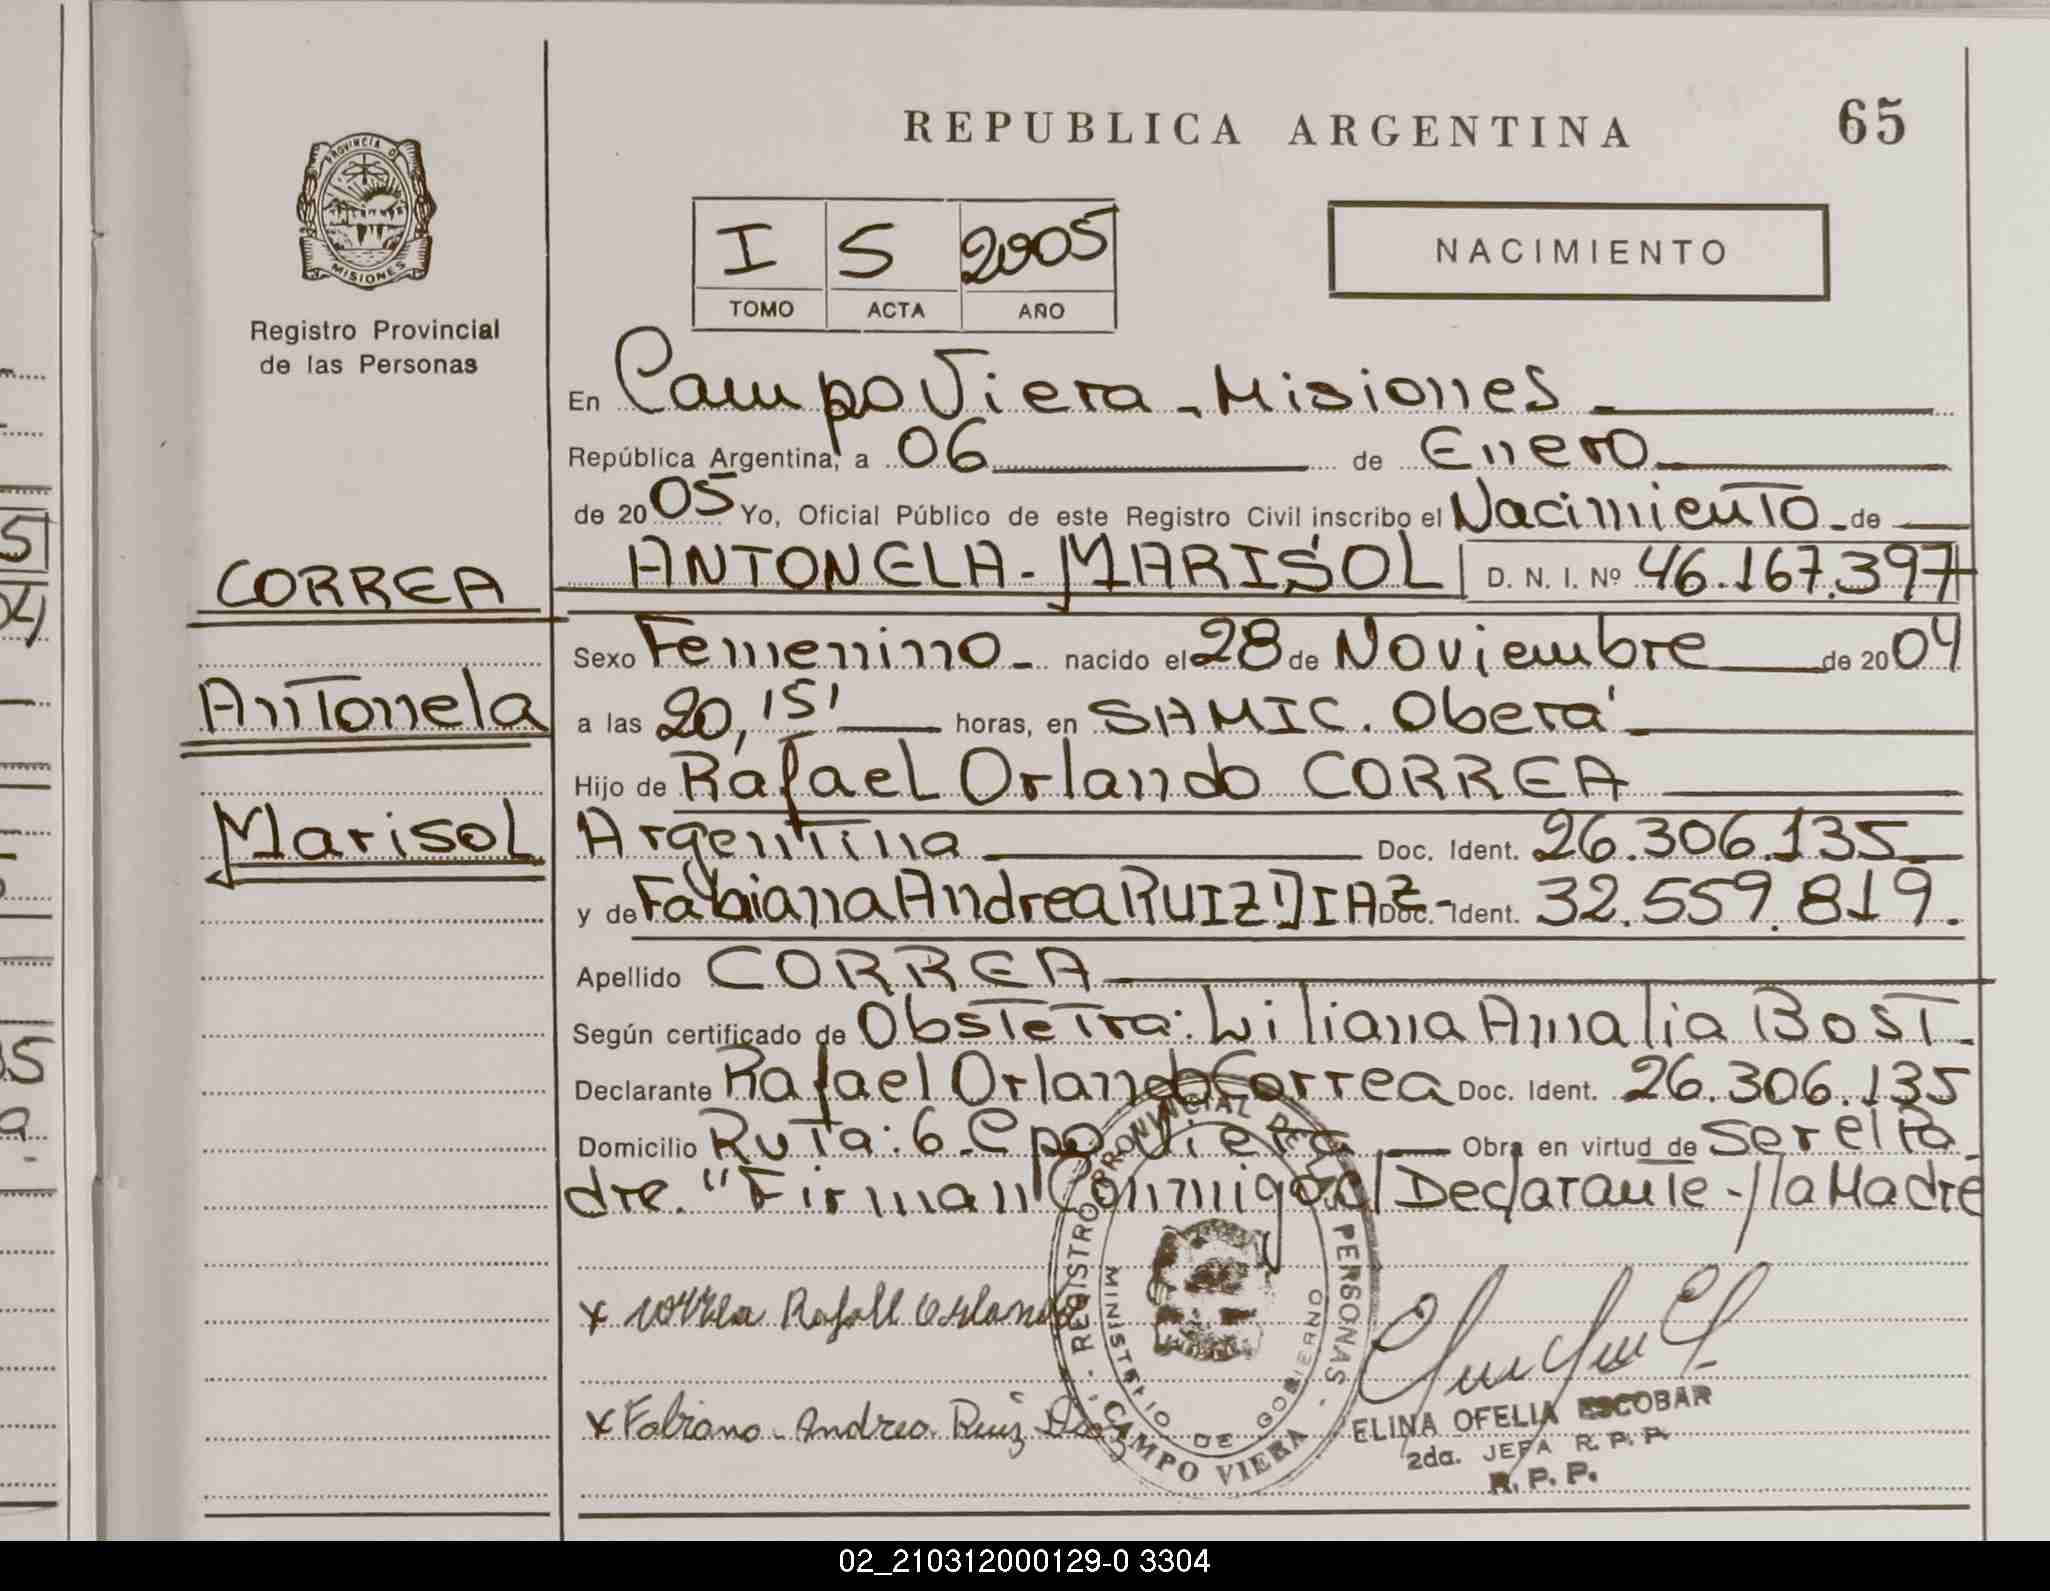 REPUBLICA ARGENTINA
65
PROVINCIA D
MISIONES
Registro Provincial
de las Personas
I S 2005
TOMO ACTA AÑO
NACIMIENTO
En Campo Viera - Misiones -
República Argentina, a 06 de Enero
de 2005 Yo, Oficial Público de este Registro Civil inscribo el Nacimiento - de
CORREA
ANTONELA - MARISOL D. N. I. Nº 46.167.397
Sexo Femenino - nacido el 28 de Noviembre de 2004
Antonela
a las 20,15' horas, en SAMIC. Oberá -
Hijo de Rafael Orlando CORREA
Marisol
Argentina Doc. Ident. 26.306.135
y de Fabiana Andrea RUIZ DIAZ - Doc. Ident. 32.559.819.
Apellido CORREA
Según certificado de Obstetra: Liliana Amalia BOST -
Declarante Rafael Orlando Correa Doc. Ident. 26.306.135
Domicilio Ruta: 6 - Cpo Viera Obra en virtud de ser el Pa
dre. "Firman Conmigo el Declarante - y la Madre
x Correa Rafael Orlando
x Fabiana Andrea Ruiz Diaz
REGISTRO PROVINCIAL DE LAS PERSONAS
MINISTERIO DE GOBIERNO
CAMPO VIERA
ELINA OFELIA ESCOBAR
2da. JEFA R. P. P.
R. P. P.
02_210312000129-0 3304